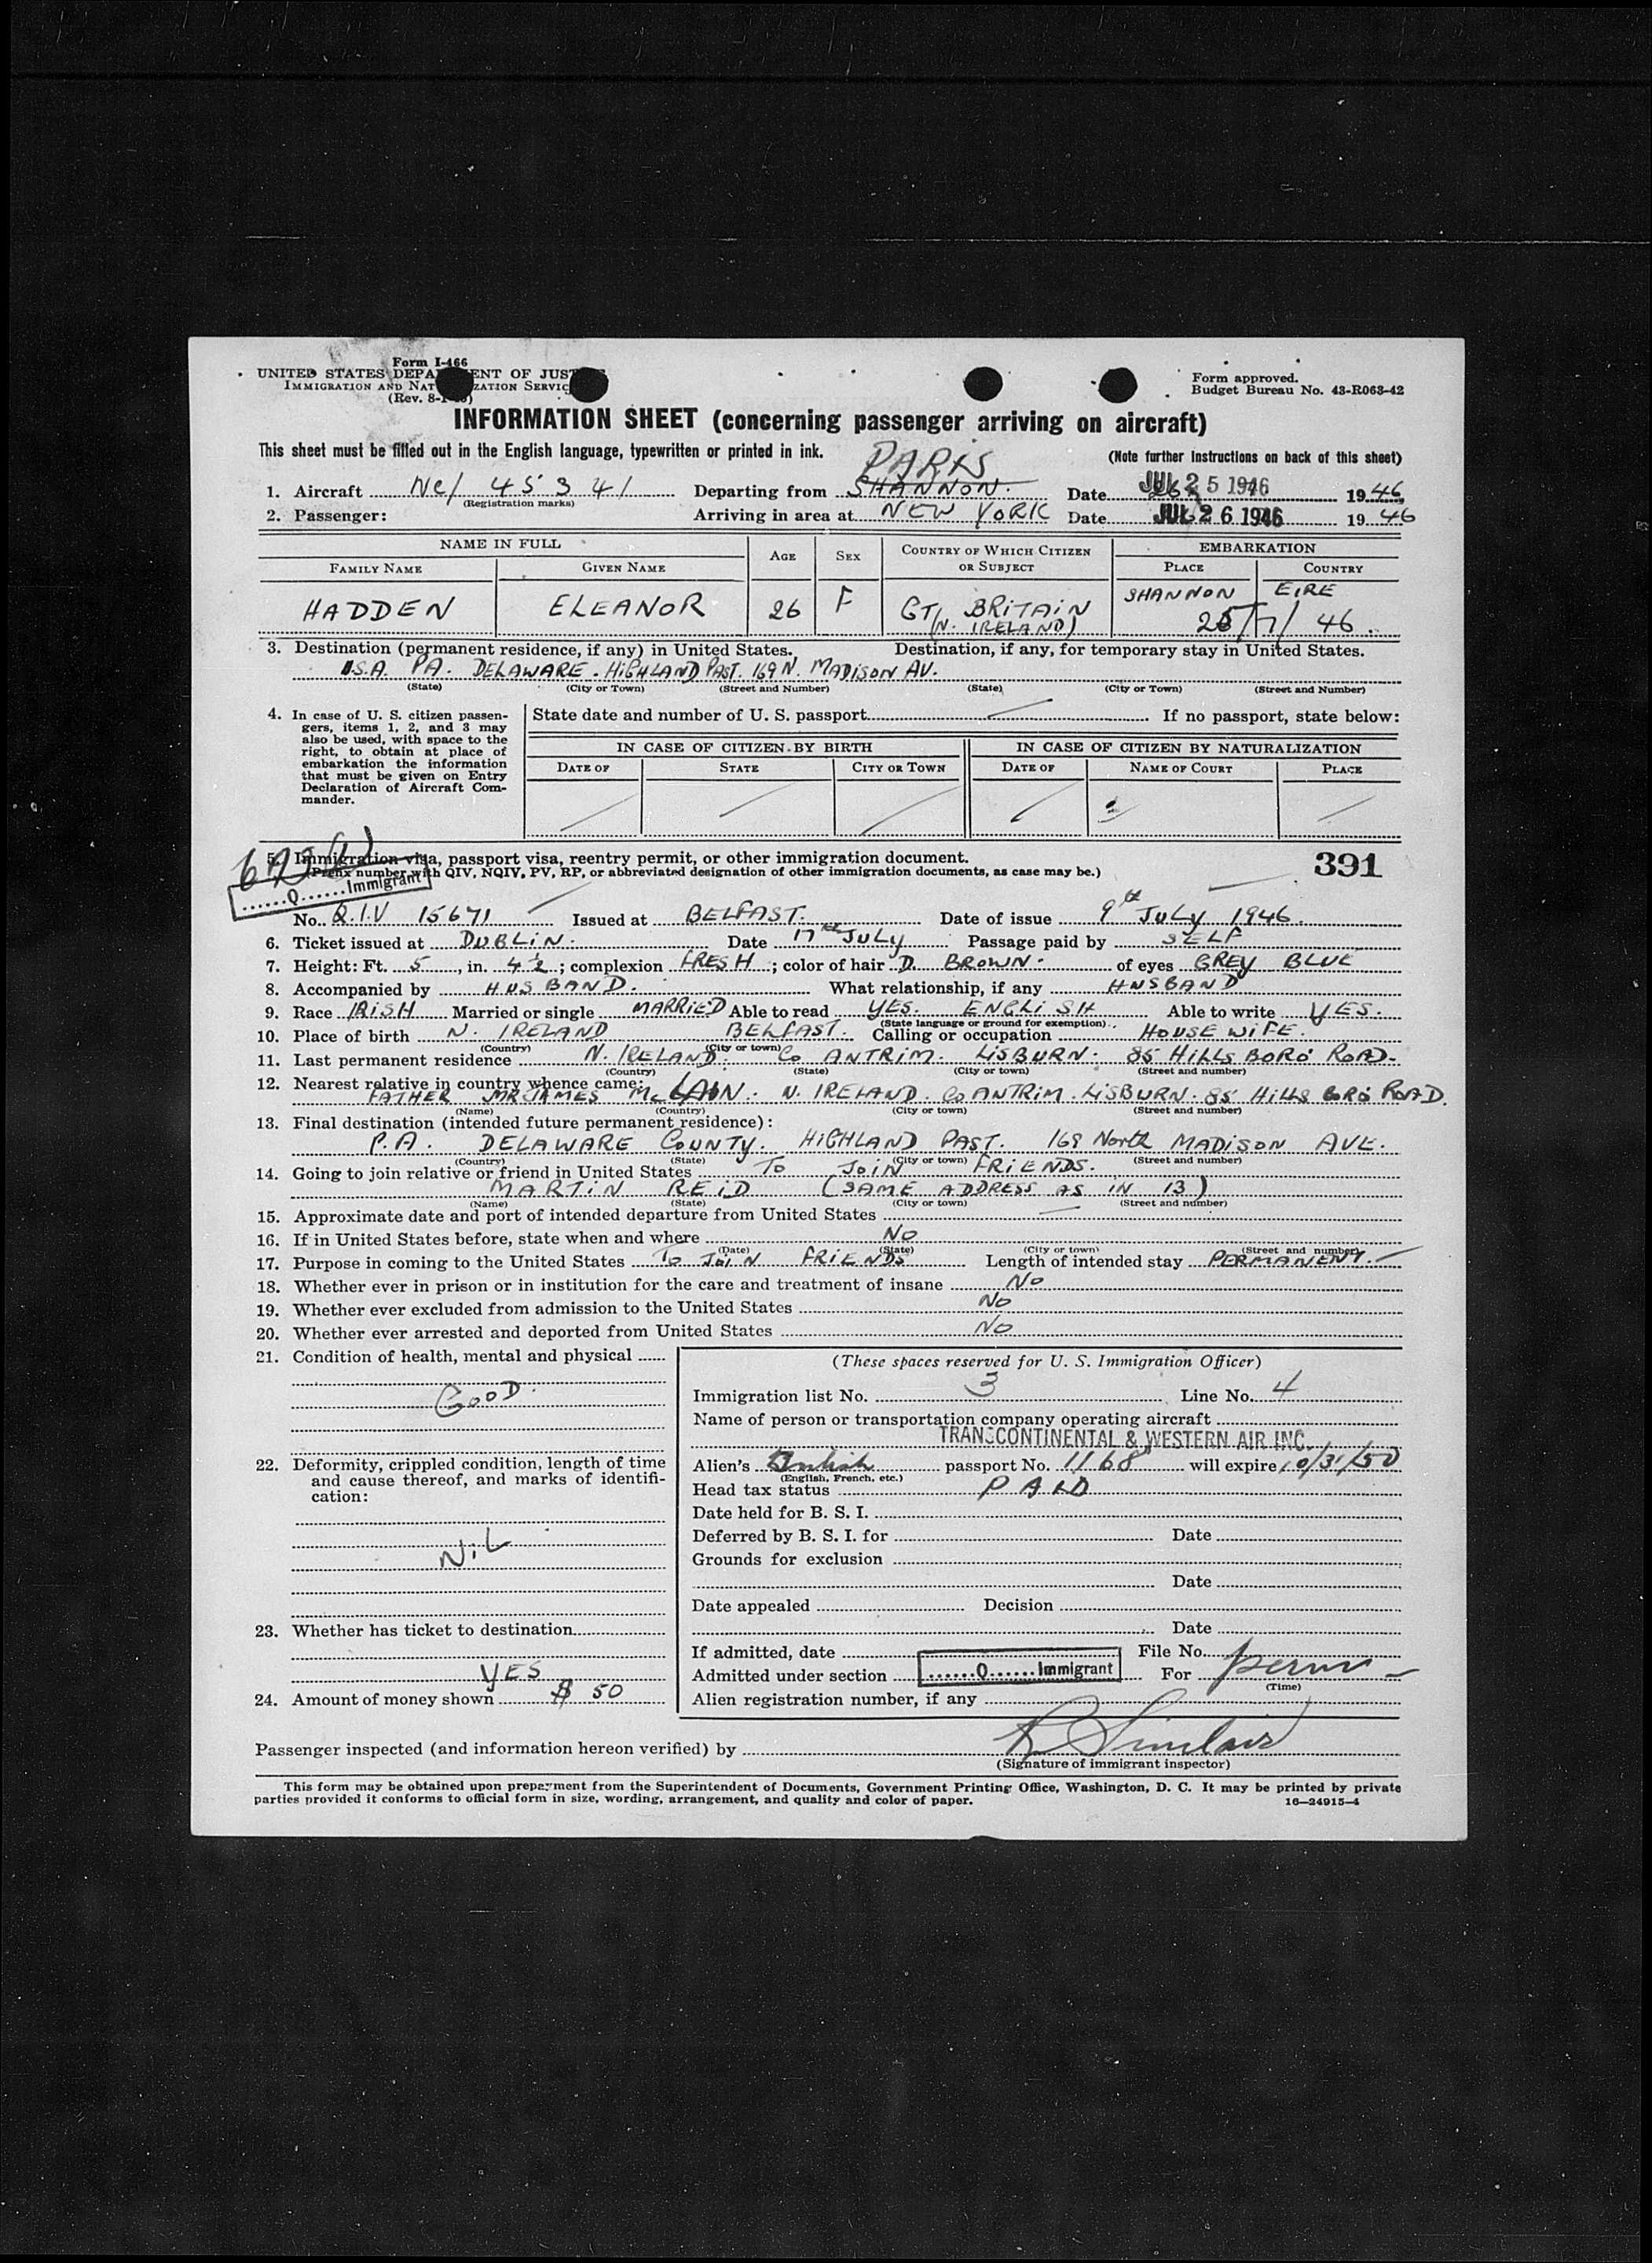 Form I-466
UNITED STATES DEPA ENT OF JUS
IMMIGRATION AND NAT ZATION SERVIC
(Rev. 8-
Form approved.
Budget Bureau No. 43-R063-42
INFORMATION SHEET (concerning passenger arriving on aircraft)
This sheet must be filled out in the English language, typewritten or printed in ink.
(Note further instructions on back of this sheet)
PARIS
1. Aircraft NC/ 45341 Departing from SHANNON. Date JUL 25 1946 1946
(Registration marks)
2. Passenger: Arriving in area at NEW YORK Date JUL 26 1946 19 46
NAME IN FULL AGE SEX COUNTRY OF WHICH CITIZEN OR SUBJECT EMBARKATION
FAMILY NAME GIVEN NAME PLACE COUNTRY
HADDEN ELEANOR 26 F GT/ BRITAIN SHANNON EIRE
(N. IRELAND) 25/7/ 46.
3. Destination (permanent residence, if any) in United States. Destination, if any, for temporary stay in United States.
U.S.A. PA. DELAWARE. HIGHLAND PAST. 169 N. MADISON AV.
(State) (City or Town) (Street and Number) (State) (City or Town) (Street and Number)
4. In case of U. S. citizen passen-
gers, items 1, 2, and 3 may
also be used, with space to the
right, to obtain at place of
embarkation the information
that must be given on Entry
Declaration of Aircraft Com-
mander.
State date and number of U. S. passport If no passport, state below:
IN CASE OF CITIZEN BY BIRTH IN CASE OF CITIZEN BY NATURALIZATION
DATE OF STATE CITY OR TOWN DATE OF NAME OF COURT PLACE
5. Immigration visa, passport visa, reentry permit, or other immigration document.
(Prefix number with QIV, NQIV, PV, RP, or abbreviated designation of other immigration documents, as case may be.)
391
......Q......Immigrant
No. Q.I.V 15671 Issued at BELFAST. Date of issue 9th JULY 1946.
6. Ticket issued at DUBLIN. Date 17th JULY Passage paid by SELF
7. Height: Ft. 5, in. 4½; complexion FRESH; color of hair D. BROWN. of eyes GREY BLUE
8. Accompanied by HUSBAND. What relationship, if any HUSBAND
9. Race IRISH Married or single MARRIED Able to read YES. ENGLISH Able to write YES.
(State language or ground for exemption)
10. Place of birth N. IRELAND BELFAST. Calling or occupation HOUSE WIFE.
(Country) (City or town)
11. Last permanent residence N. IRELAND. Co ANTRIM. LISBURN. 85 HILLSBORO' ROAD.
(Country) (State) (City or town) (Street and number)
12. Nearest relative in country whence came:
FATHER MR JAMES N. IRELAND. Co ANTRIM. LISBURN. 85 HILLSBORO ROAD.
(Name) (Country) (City or town) (Street and number)
13. Final destination (intended future permanent residence):
P.A. DELAWARE COUNTY. HIGHLAND PAST. 169 North MADISON AVE.
(Country) (State) (City or town) (Street and number)
14. Going to join relative or friend in United States TO JOIN FRIENDS.
MARTIN REID (SAME ADDRESS AS IN 13)
(Name) (State) (City or town) (Street and number)
15. Approximate date and port of intended departure from United States
16. If in United States before, state when and where NO
(Date) (State) (City or town) (Street and number)
17. Purpose in coming to the United States TO JOIN FRIENDS Length of intended stay PERMANENT.
18. Whether ever in prison or in institution for the care and treatment of insane NO
19. Whether ever excluded from admission to the United States NO
20. Whether ever arrested and deported from United States NO
21. Condition of health, mental and physical
GOOD.
22. Deformity, crippled condition, length of time
and cause thereof, and marks of identifi-
cation:
NIL
23. Whether has ticket to destination
YES
24. Amount of money shown $ 50
(These spaces reserved for U. S. Immigration Officer)
Immigration list No. 3 Line No. 4
Name of person or transportation company operating aircraft
TRANSCONTINENTAL & WESTERN AIR INC.
Alien's British passport No. 1168 will expire 10/31/50
(English, French, etc.)
Head tax status PAID
Date held for B. S. I.
Deferred by B. S. I. for Date
Grounds for exclusion
Date
Date appealed Decision
Date
If admitted, date File No.
Admitted under section ......Q......Immigrant For perm
(Time)
Alien registration number, if any
Passenger inspected (and information hereon verified) by R Sinclair
(Signature of immigrant inspector)
This form may be obtained upon prepayment from the Superintendent of Documents, Government Printing Office, Washington, D. C. It may be printed by private
parties provided it conforms to official form in size, wording, arrangement, and quality and color of paper. 16—24915-4